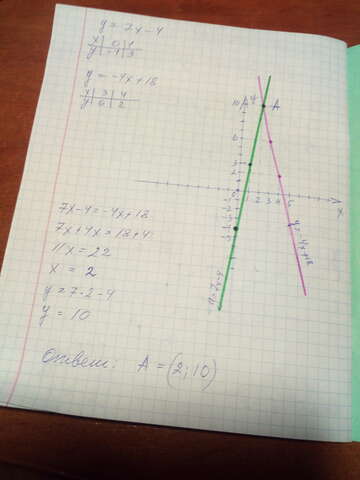 y = 7x - 4
x | 0 | 1
y | -4 | 3
y = -4x + 18
x | 3 | 4
y | 6 | 2
7x - 4 = -4x + 18
7x + 4x = 18 + 4
11x = 22
x = 2
y = 7·2 - 4
y = 10
Ответ: A = (2; 10)
10
y
A
6
3
2
0
1 2 3 4
x
y = 7x - 4
y = -4x + 18